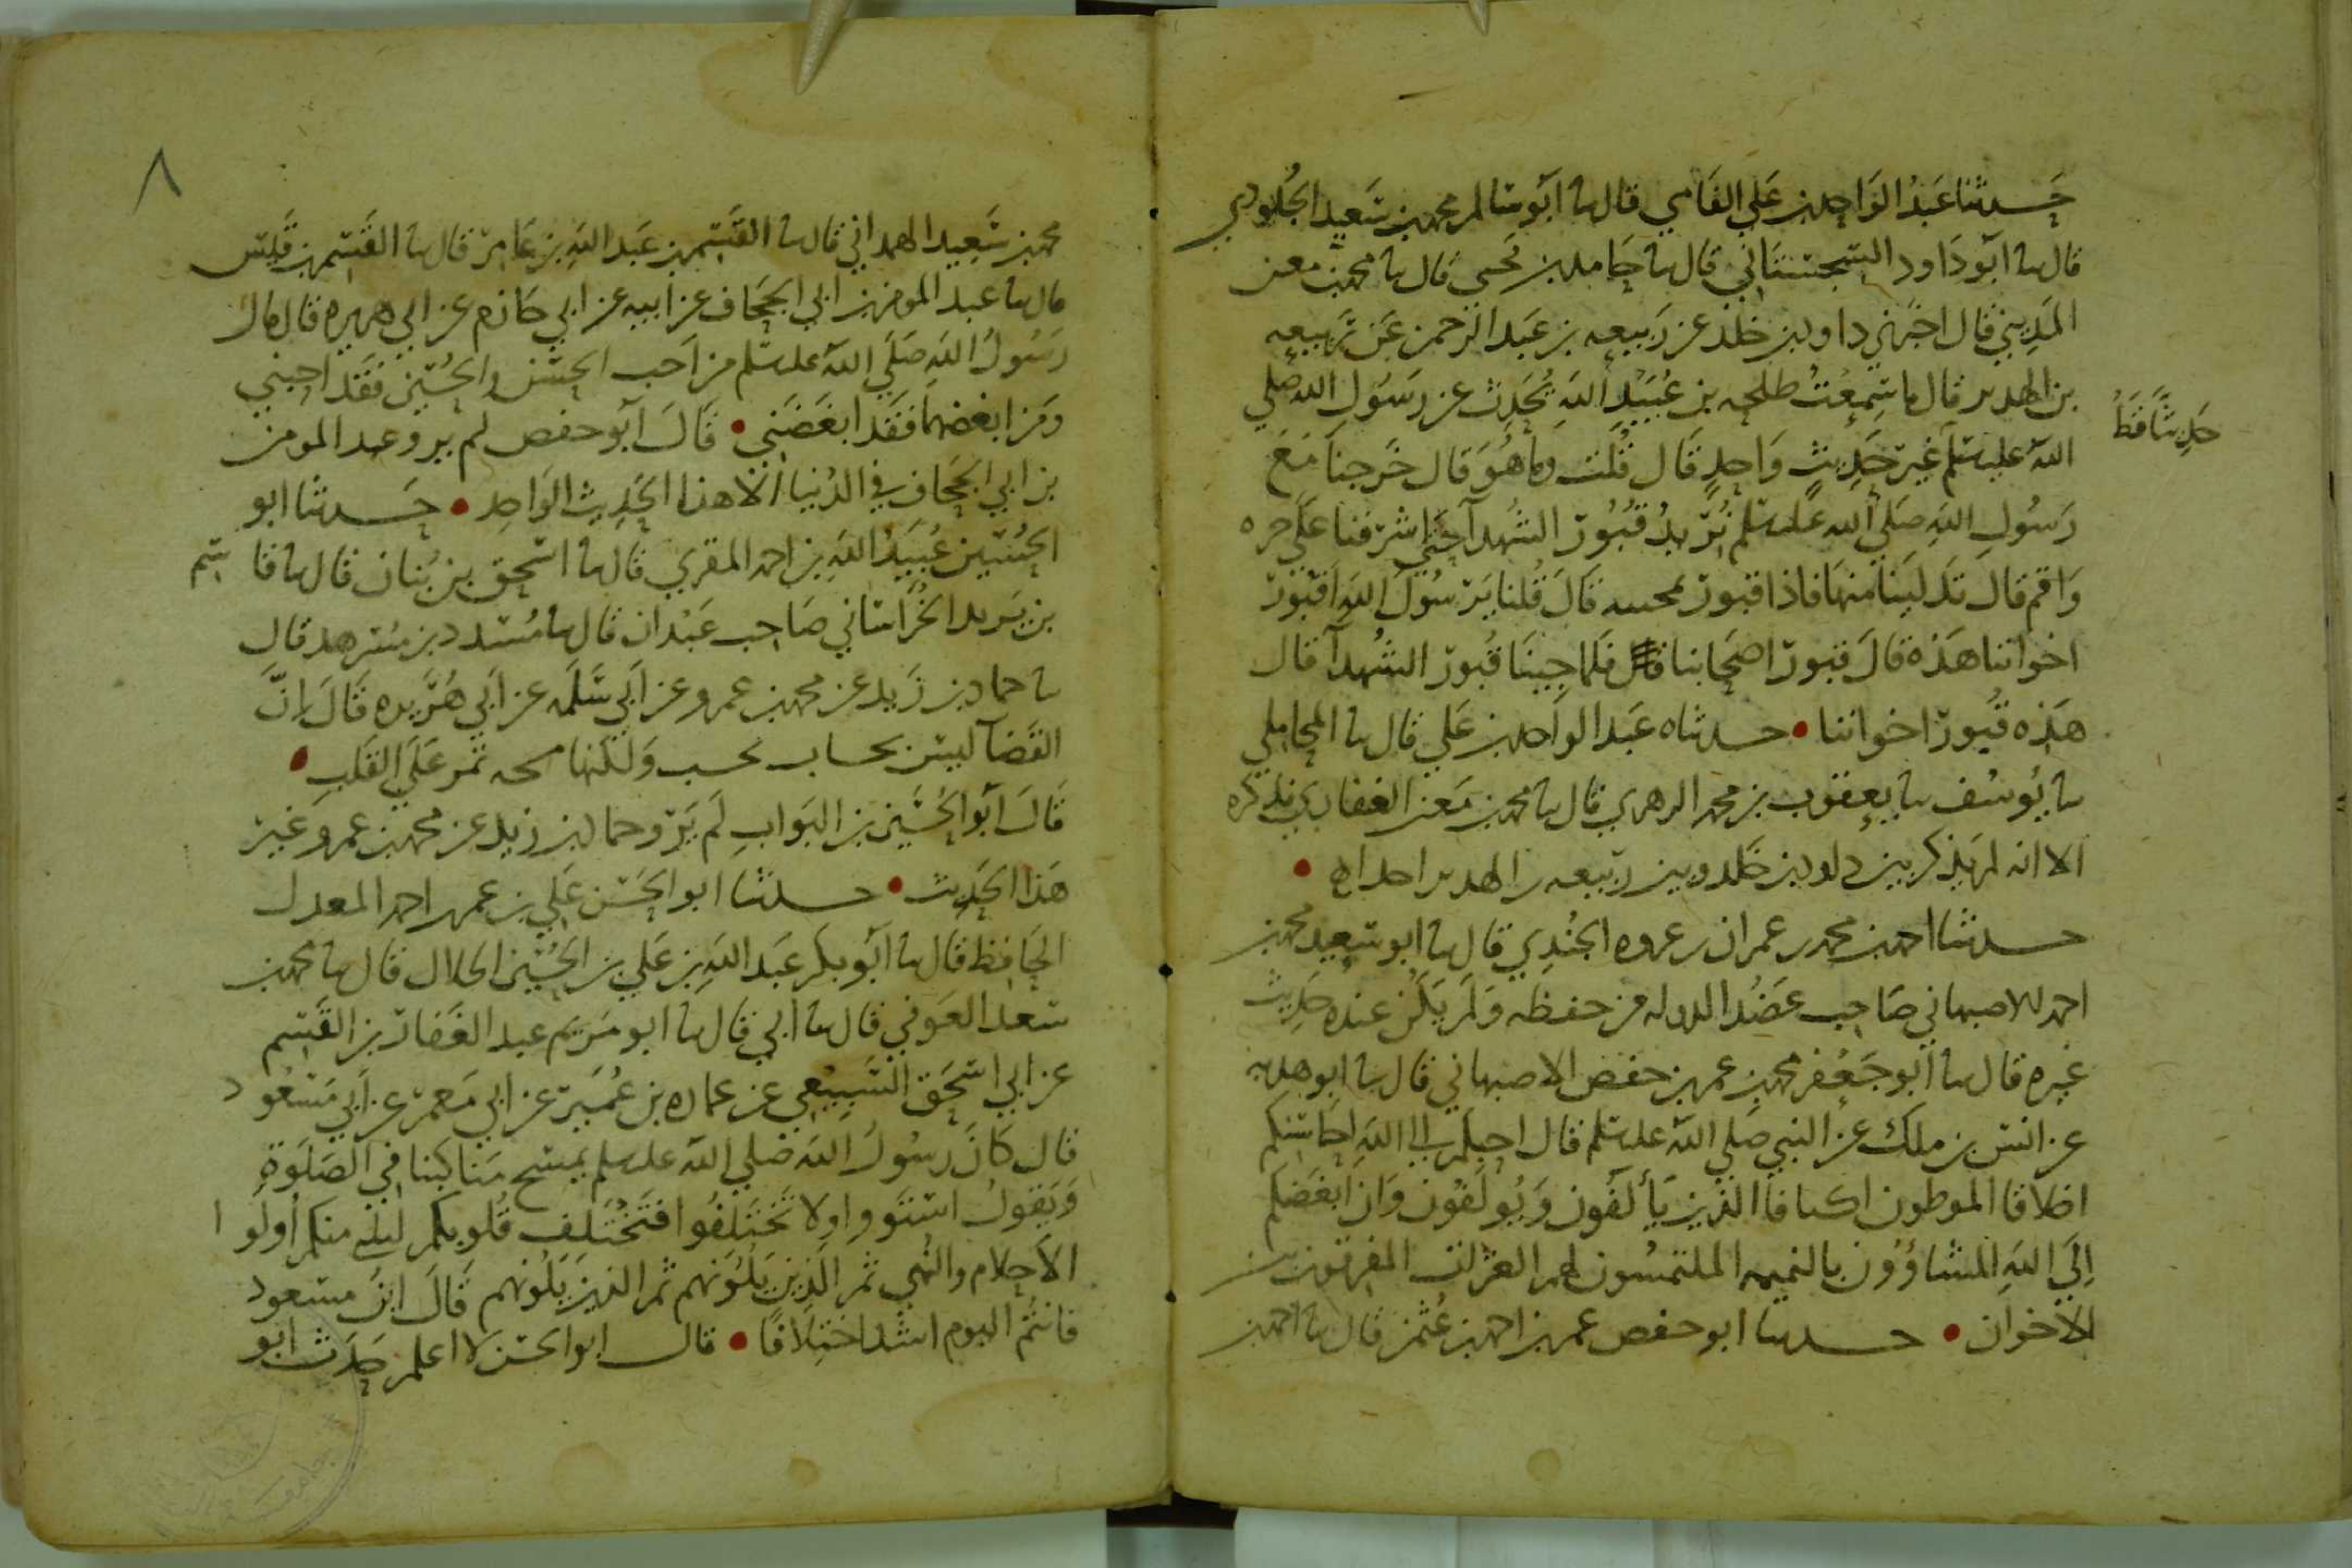 حدثنا عبد الواحد بن علي الفامي قال نا ابو سالم محمد بن سعيد الجلودي
قال نا ابو داود السجستاني قال نا حامد بن يحيى قال نا محمد بن معن
المديني قال اخبرني داود بن خلد عن ربيعه بن عبد الرحمن عن ربيعه
بن الهدير قال ما سمعت طلحه بن عبيد الله يحدث عن رسول الله صلي
حديثا قط
الله عليه سلم غير حديث واحد قال قلت وما هو قال خرجنا مع
رسول الله صلي الله عليه سلم نريد قبور الشهدآ حتي اشرفنا علي حره
واقم قال تدلينا منها فاذا قبور بمحنيه قال قلنا يرسول الله اقبور
اخواننا هذه قال قبور اصحابنا فلما جينا قبور الشهدآ قال
هذه قبور اخواننا • حدثناه عبد الواحد بن علي قال نا المحاملي
نا يوسف نا يعقوب بن محمد الزهري قال نا محمد بن معن الغفاري فذكره
الا انه لم يذكر بين داود بن خلد وبين ربيعه بن الهدير احدا •
حدثنا احمد بن محمد بن عمران بن عروه الجندي قال نا ابو سعيد محمد بن
احمد الاصبهاني صاحب عضد الدوله من حفظه ولم يكن عنده حديث
غيره قال نا ابو جعفر محمد بن عمر بن حفص الاصبهاني قال نا ابو هدبه
عن انس بن ملك عن النبي صلي الله عليه سلم قال احبكم الي الله احاسنكم
اخلاقا الموطون اكنافا الذين يألفون ويولفون وان ابغضكم
الي الله المشاؤون بالنميمه الملتمسون لهم العثرات المفرقون بين
الاخوان • حدثنا ابو حفص عمر بن احمد بن عثمن قال نا احمد بن
٨
محمد بن سعيد الهمداني قال نا القسم بن عبد الله بن عامر قال نا القسم بن قليس
قال نا عبد المومن بن ابي الجحاف عن ابيه عن ابي حازم عن ابي هريره قال قال
رسول الله صلي الله عليه سلم من احب الحسن والحسين فقد احبني
ومن ابغضهما فقد ابغضني • قال ابو حفص لم يرو عبد المومن
بن ابي الجحاف في الدنيا الا هذا الحديث الواحد • حدثنا ابو
الحسين عبيد الله بن احمد المقري قال نا اسحق بن بنان قال نا قاسم
بن يزيد الخراساني صاحب عبدان قال نا مسدد بن مسرهد قال
نا حماد بن زيد عن محمد بن عمرو عن ابي سلمه عن ابي هريره قال ان
القضآ ليس بحساب يحسب ولكنها مسحه تمر علي القلب •
قال ابو الحسين بن البواب لم يرو حماد بن زيد عن محمد بن عمرو غير
هذا الحديث • حدثنا ابو الحسن علي بن عمر بن احمد المعدل
الحافظ قال نا ابو بكر عبد الله بن علي بن الحسين الخلال قال نا محمد بن
سعد العوفي قال نا ابي قال نا ابو مريم عبد الغفار بن القسم
عن ابي اسحق السبيعي عن عماره بن عمير عن ابي معمر عن ابي مسعود
قال كان رسول الله صلي الله عليه سلم يمسح مناكبنا في الصلوة
ويقول استووا ولا تختلفوا فتختلف قلوبكم ليليني منكم أولوا
الاحلام والنهي ثم الذين يلونهم ثم الذين يلونهم قال ابن مسعود
فانتم اليوم اشد اختلافا • قال ابو الحسن لا اعلم حدث ابو